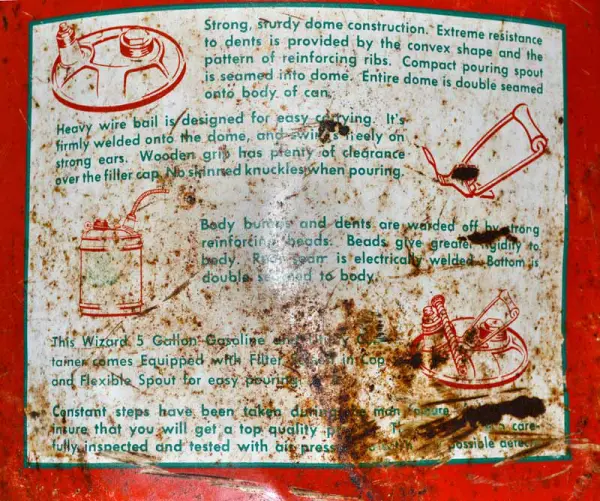 Strong, sturdy dome construction. Extreme resistance
to dents is provided by the convex shape and the
pattern of reinforcing ribs. Compact pouring spout
is seamed into dome. Entire dome is double seamed
onto body of can.
Heavy wire bail is designed for easy carrying. It's
firmly welded onto the dome, and swings freely on
strong ears. Wooden grip has plenty of clearance
over the filler cap. No skinned knuckles when pouring.
Body bumps and dents are warded off by strong
reinforcing beads. Beads give greater rigidity to
body. seam is electrically welded. Bottom is
double seamed to body.
This Wizard 5 Gallon Gasoline and Utility Con-
tainer comes Equipped with Filter in Cap
and Flexible Spout for easy pouring.
Constant steps have been taken during the
insure that you will get a top quality care-
fully inspected and tested with air pressure possible